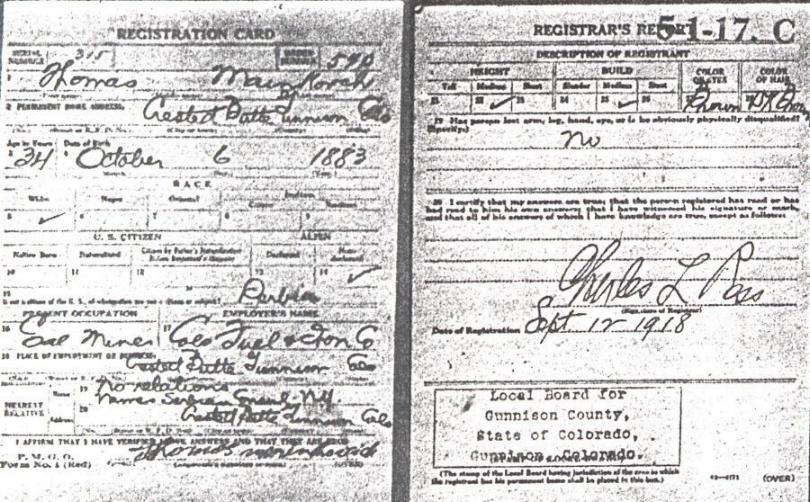 REGISTRATION CARD
SERIAL NUMBER 315 ORDER NUMBER
1 Thomas
2 PERMANENT HOME ADDRESS:
Crested Butte Gunnison Colo
Age in Years Date of Birth
34 October 6 1883
RACE
White Negro Oriental Indian
5 ✓ 6 7 8 9
U. S. CITIZEN ALIEN
Native Born Naturalized Citizen by Father's Naturalization Declarant Non-declarant
10 11 12 13 14 ✓
15
If not a citizen of the U. S., of what nation are you a citizen or subject? Serbia
PRESENT OCCUPATION EMPLOYER'S NAME
16 Coal Miner 17 Colo Fuel & Iron Co
18 PLACE OF EMPLOYMENT OR BUSINESS:
Crested Butte Gunnison Colo
NEAREST RELATIVE
Name 19 No relations
Names Serbian Consul N.Y.
Address 20 Crested Butte Gunnison Colo
I AFFIRM THAT I HAVE VERIFIED ABOVE ANSWERS AND THAT THEY ARE TRUE
P. M. G. O.
Form No. 1 (Red) Thomas (OVER)
REGISTRAR'S REPORT 51-17. C
DESCRIPTION OF REGISTRANT
HEIGHT BUILD COLOR OF EYES COLOR OF HAIR
Tall Medium Short Slender Medium Stout
21 22 ✓ 23 24 25 ✓ 26 Brown
29 Has person lost arm, leg, hand, eye, or is he obviously physically disqualified?
(Specify.)
No
30 I certify that my answers are true; that the person registered has read or has
had read to him his own answers; that I have witnessed his signature or mark,
and that all of his answers of which I have knowledge are true, except as follows:
Charles L Ross
(Signature of Registrar)
Date of Registration Sept 12 1918
Local Board for
Gunnison County,
State of Colorado,
Gunnison, Colorado.
(The stamp of the Local Board having jurisdiction of the area in which
the registrant has his permanent home shall be placed in this box.)
(OVER)